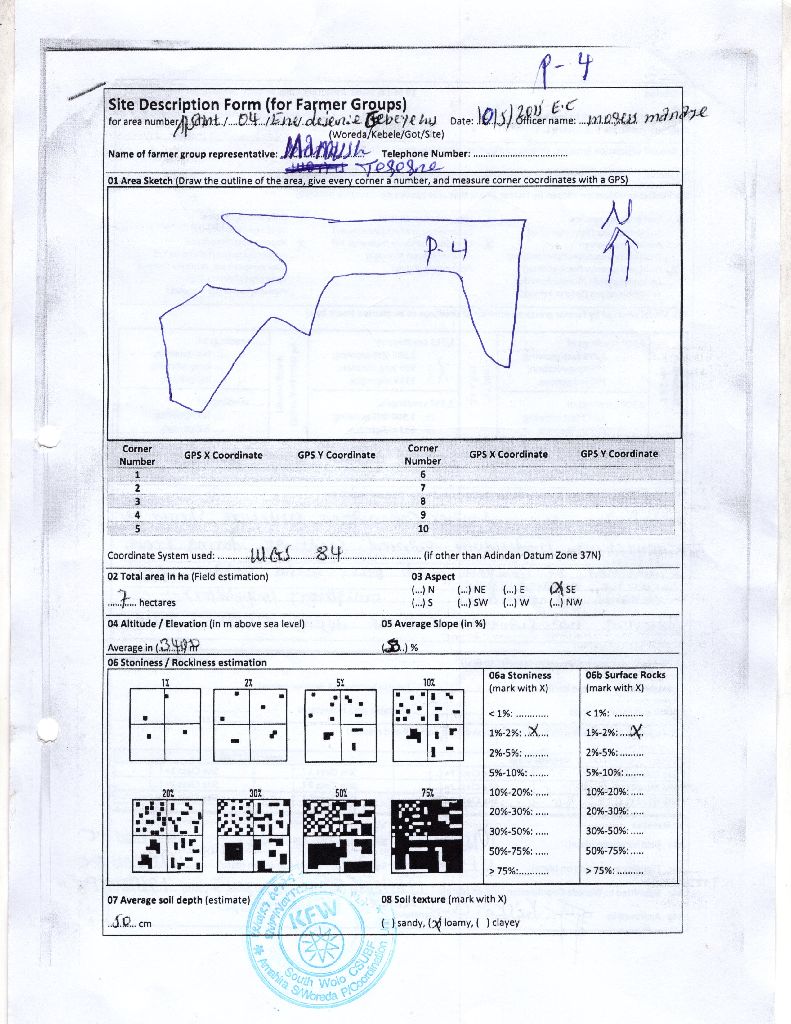 P-4
Site Description Form (for Farmer Groups)
for area number / 04 / Date: 10/5/2011 E.C Officer name:
(Woreda/Kebele/Got/Site)
Name of farmer group representative: Mamush Telephone Number:
Tegegne
01 Area Sketch (Draw the outline of the area, give every corner a number, and measure corner coordinates with a GPS)
P-4
N
Corner Number GPS X Coordinate GPS Y Coordinate Corner Number GPS X Coordinate GPS Y Coordinate
1 6
2 7
3 8
4 9
5 10
Coordinate System used: WGS 84 (if other than Adindan Datum Zone 37N)
02 Total area in ha (Field estimation) 03 Aspect
7 hectares
(...) N (...) NE (...) E (X) SE
(...) S (...) SW (...) W (...) NW
04 Altitude / Elevation (in m above sea level) 05 Average Slope (in %)
Average in ( (...) %
06 Stoniness / Rockiness estimation
1% 2% 5% 10%
20% 30% 50% 75%
06a Stoniness (mark with X)
< 1%: ...........
1%-2%: ..X....
2%-5%: .......
5%-10%: .......
10%-20%: .....
20%-30%: .....
30%-50%: .....
50%-75%: .....
> 75%: .........
06b Surface Rocks (mark with X)
< 1%: ..........
1%-2%: ....X.
2%-5%: .......
5%-10%: .......
10%-20%: .....
20%-30%: .....
30%-50%: .....
50%-75%: .....
> 75%: .........
07 Average soil depth (estimate) 08 Soil texture (mark with X)
50 cm ( ) sandy, (X) loamy, ( ) clayey
KFW
South Wolo CSUBF
Amahira S/Woreda P/Coordination